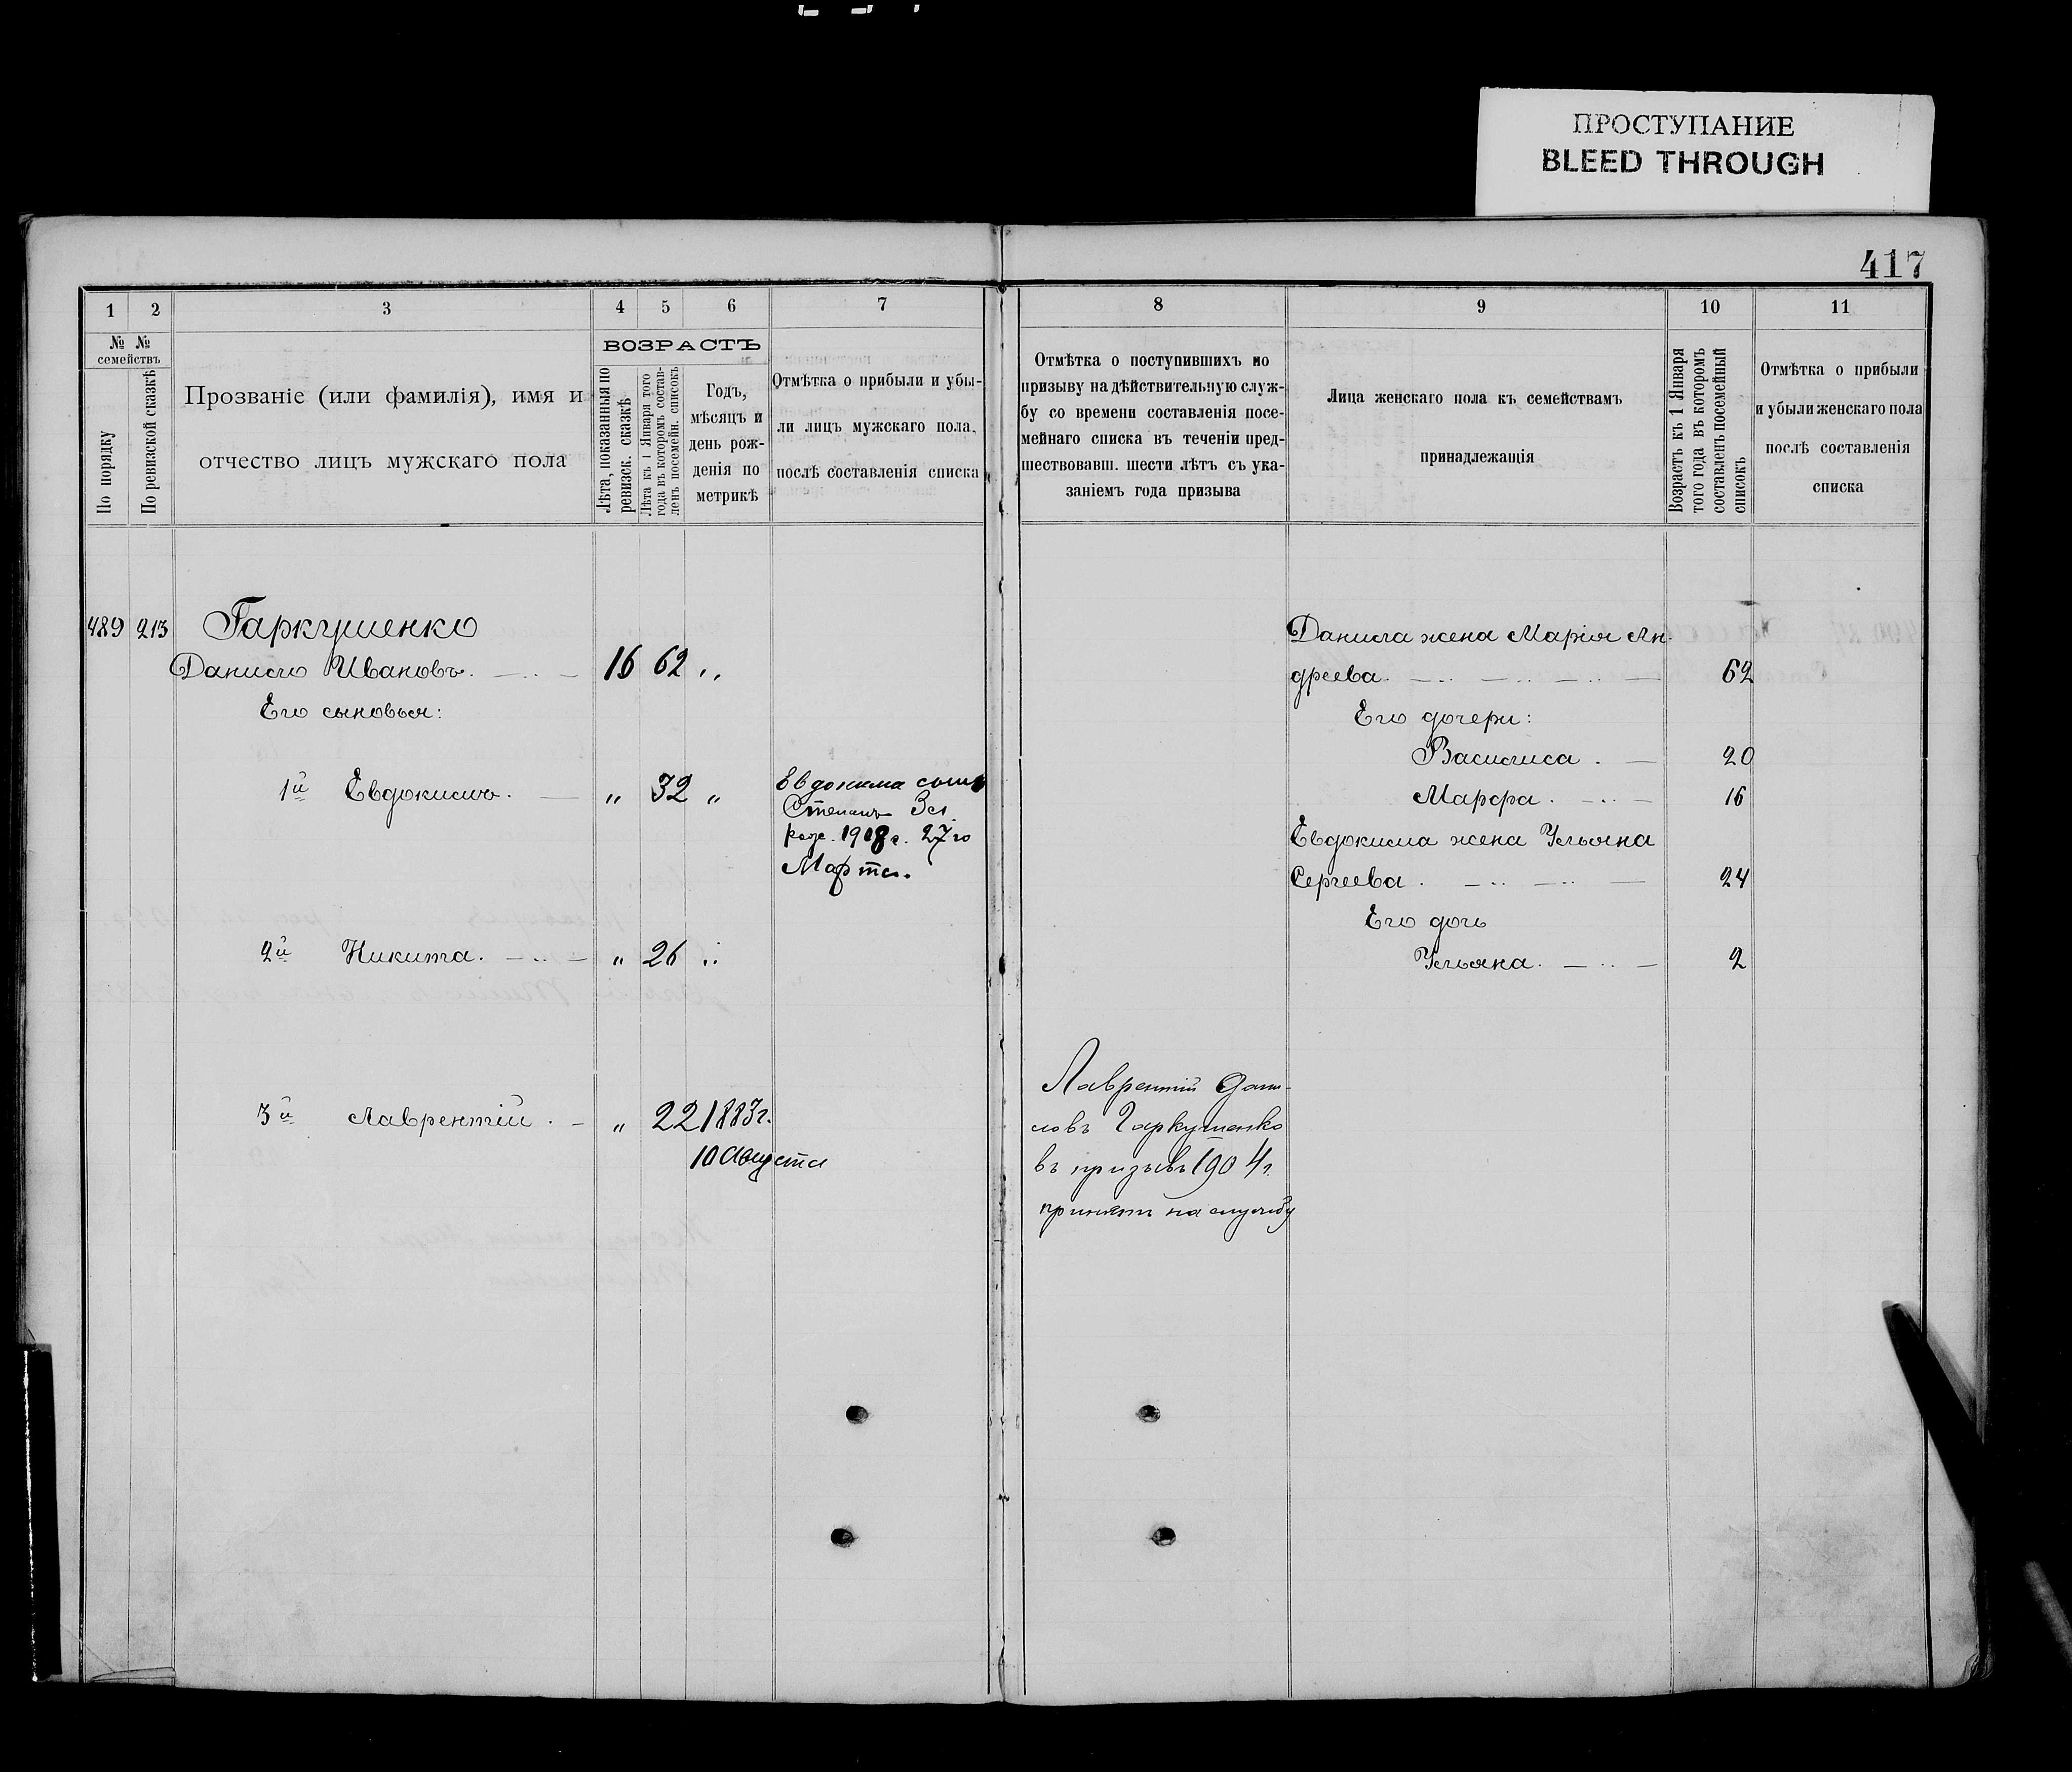 ПРОСТУПАНИЕ
BLEED THROUGH
417
1 2 3 4 5 6 7 8 9 10 11
№ №
семействъ
По порядку
По ревизской сказкѣ
Прозваніе (или фамилія), имя и
отчество лицъ мужскаго пола
ВОЗРАСТЪ
Лѣта, показанныя по
ревизск. сказкѣ
Лѣта къ 1 Января того
года въ которомъ состав-
ленъ посемейн. списокъ
Годъ,
мѣсяцъ и
день рож-
денія по
метрикѣ
Отмѣтка о прибыли и убы-
ли лицъ мужскаго пола,
послѣ составленія списка
Отмѣтка о поступившихъ по
призыву на дѣйствительную служ-
бу со времени составленія посе-
мейнаго списка въ теченіи пред-
шествовавш. шести лѣтъ съ ука-
заніемъ года призыва
Лица женскаго пола къ семействамъ
принадлежащія
Возрастъ къ 1 Января
того года въ которомъ
составленъ посемейный
списокъ
Отмѣтка о прибыли
и убыли женскаго пола
послѣ составленія
списка
489 213 Гаркушенко
Данило Ивановъ. 16 62 "
Его сыновья:
1й Евдокимъ. " 32 "
Евдокима сынъ
Степанъ
рож. 1908 г. 27го
Марта.
2й Никита. " 26 "
3й Лаврентій. " 22 1883г.
10 Августа
Лаврентій Дани-
ловъ Гаркушенко
въ призывъ 1904 г.
принятъ на службу
Данила жена Марія Ан-
дреева. 62
Его дочери:
Василиса. 20
Марфа. 16
Евдокима жена Ульяна
Сергеева. 24
Его дочь
Ульяна. 2